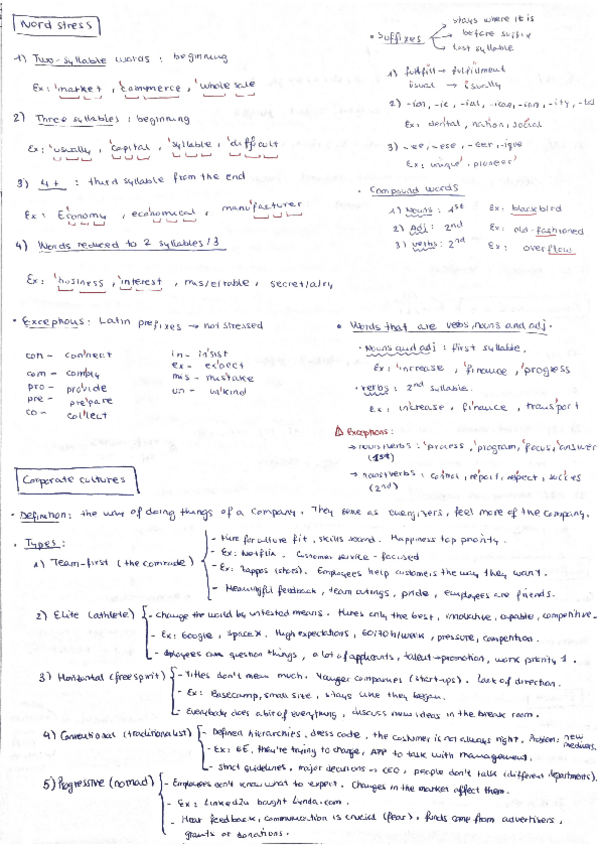 Word stress
1) Two-syllable words : beginning
Ex: 'market , 'commerce , 'wholesale
2) Three syllables : beginning
Ex: 'usually , 'capital , 'syllable , 'difficult
3) 4+ : third syllable from the end
Ex : Economy , economical , manufacturer
4) Words reduced to 2 syllables/3
Ex: 'business , 'interest , mis/e/rable , secret/a/ry
• Exceptions: Latin prefixes → not stressed
con - con'nect
com - comply
pro - pro'vide
pre - pre'pare
co - col'lect
in - in'sist
ex - ex'pect
mis - mis'take
un - un'kind
• Suffixes
stays where it is
before suffix
last syllable
1) fulfill - fulfillment
usual - usually
2) -ion, -ic, -ial, -ian, -ity
Ex: dental, nation, social
3) -ee, -ese, -eer, -ique
Ex: unique, pioneer
• Compound words
1) Nouns : 1st Ex: blackbird
2) Adj : 2nd Ex: old-fashioned
3) verbs: 2nd Ex: overflow
• Words that are verbs, nouns and adj.
• Nouns and adj : first syllable.
Ex: 'increase , 'finance , 'progress
• verbs : 2nd syllable.
Ex: in'crease , fi'nance , trans'port
Exceptions:
→ nouns/verbs : 'process, 'program, 'focus, 'answer
(1st)
→ nouns/verbs : control, report, respect,
(2nd)
Corporate cultures
• Definition: the way of doing things of a company. They come as , feel more of the company.
• Types :
1) Team-first (the comrade)
- Hire for culture fit, skills second. Happiness top priority.
- Ex: Netflix. Customer service - focused
- Ex: Zappos (shoes). Employees help customers the way they want.
- Meaningful feedback, team outings, pride, employees are friends.
2) Elite (athlete)
- Change the world by untested means. Hires only the best, innovative, capable, competitive.
- Ex: Google, SpaceX, High expectations, 60/70h/week, pressure, competition.
- Employees can question things, a lot of applicants, talent→promotion, work priority 1.
3) Horizontal (free spirit)
- Titles don't mean much. Younger companies (start-ups). Lack of direction.
- Ex: Basecamp, small size, stays like they began.
- Everybody does a bit of everything, discuss new ideas in the break room.
4) Conventional (traditionalist)
- Defined hierarchies, dress code, the customer is not always right. Problem: new mediums.
- Ex: GE, they're trying to change, APP to talk with management.
- Strict guidelines, major decisions → CEO, people don't talk (different departments).
5) Progressive (nomad)
- Employees don't know what to expect. Changes in the market affect them.
- Ex: LinkedIn bought Lynda.com.
- Hear feedback, communication is crucial (fear), funds come from advertisers,
grants or donations.